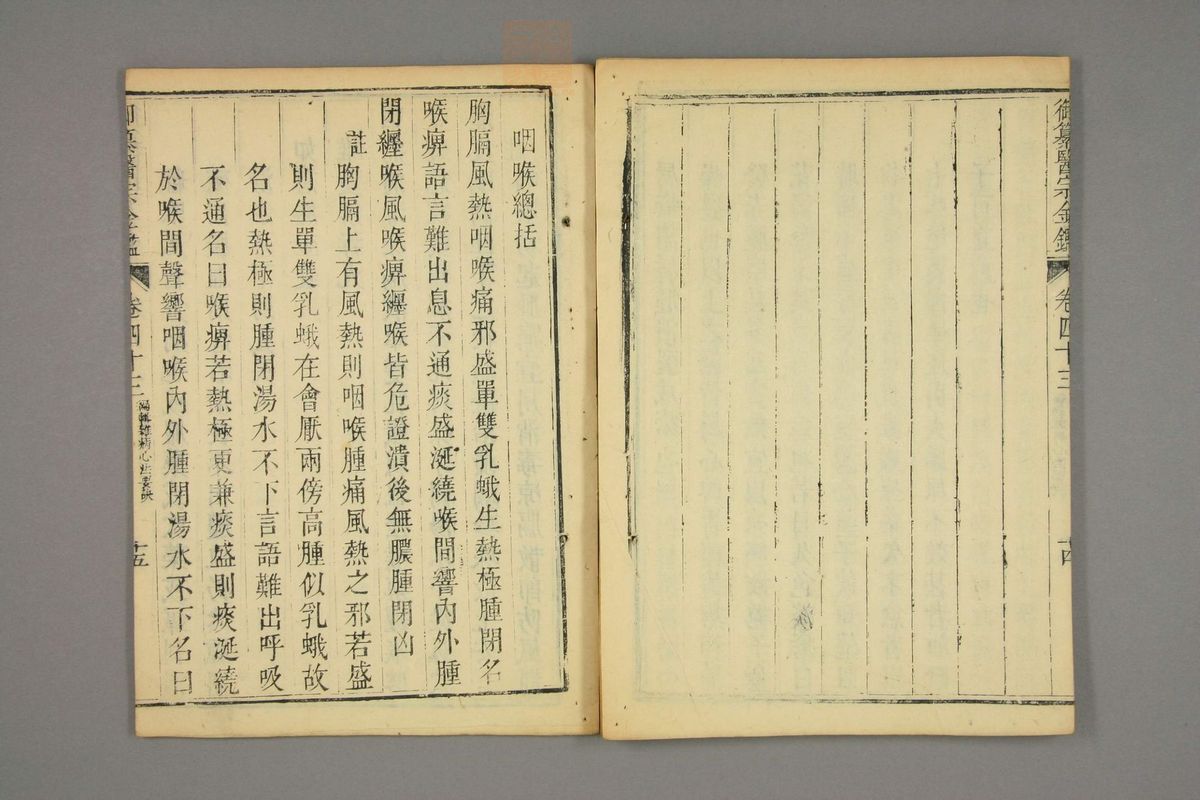 御纂醫宗金鑑
卷四十三
十四
咽喉總括
胸膈風熱咽喉痛邪盛單雙乳蛾生熱極腫閉名
喉痹語言難出息不通痰盛涎繞喉間響內外腫
閉纏喉風喉痹纏喉皆危證潰後無膿腫閉凶
註胸膈上有風熱則咽喉腫痛風熱之邪若盛
則生單雙乳蛾在會厭兩傍高腫似乳蛾故
名也熱極則腫閉湯水不下言語難出呼吸
不通名曰喉痹若熱極更兼痰盛則痰涎繞
於喉間聲響咽喉內外腫閉湯水不下名曰
卷四十三
十五